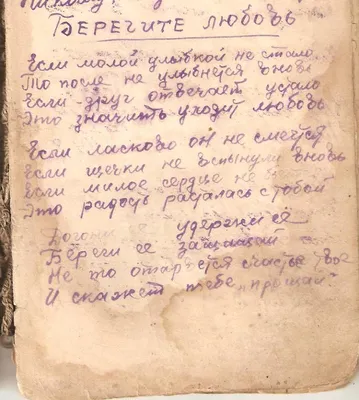 БЕРЕГИТЕ ЛЮБОВЬ
Если милой улыбкой не стало
То после не улыбнется вновь
Если друг отвечает устало
Это значить уходит любовь
Если ласково он не смеется
Если щечки не вспыхнули вновь
Если милое сердце не
Это радость расталась с тобой
Догони удержи её
Береги её защищай
Не то оторвется счастье твое
И скажет тебе "прощай"